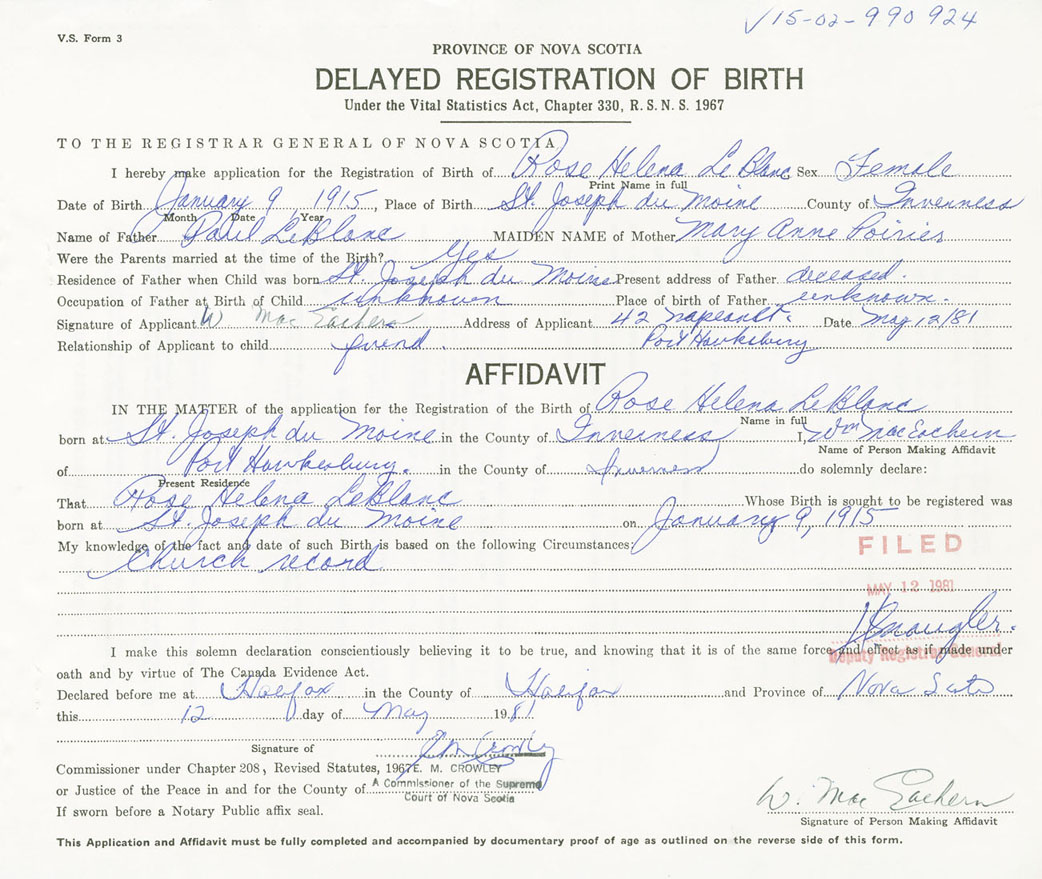 ✓15-02-990 924
V.S. Form 3
PROVINCE OF NOVA SCOTIA
DELAYED REGISTRATION OF BIRTH
Under the Vital Statistics Act, Chapter 330, R. S. N. S. 1967
TO THE REGISTRAR GENERAL OF NOVA SCOTIA
I hereby make application for the Registration of Birth of Rose Helena LeBlanc Sex Female
Print Name in full
Date of Birth January 9 1915, Place of Birth St. Joseph du Moine County of Inverness
Month Date Year
Name of Father Paul LeBlanc MAIDEN NAME of Mother Mary Anne Poirier
Were the Parents married at the time of the Birth? Yes
Residence of Father when Child was born St. Joseph du Moine Present address of Father deceased.
Occupation of Father at Birth of Child unknown Place of birth of Father unknown.
Signature of Applicant W Mac Eachern Address of Applicant 42 Date May 12/81
Relationship of Applicant to child friend. Port Hawksbury
AFFIDAVIT
IN THE MATTER of the application for the Registration of the Birth of Rose Helena LeBlanc
Name in full
born at St. Joseph du Moine in the County of Inverness I, Wm MacEachern
Name of Person Making Affidavit
of Port Hawkesbury. in the County of Inverness do solemnly declare:
Present Residence
That Rose Helena LeBlanc Whose Birth is sought to be registered was
born at St. Joseph du Moine on January 9, 1915
My knowledge of the fact and date of such Birth is based on the following Circumstances:
Church record
FILED
MAY 12 1981
Deputy Registrar General
I make this solemn declaration conscientiously believing it to be true, and knowing that it is of the same force and effect as if made under
oath and by virtue of The Canada Evidence Act.
Declared before me at Halifax in the County of Halifax and Province of Nova Scotia
this 12 day of May 1981
Signature of E M Crowley
Commissioner under Chapter 208, Revised Statutes, 1967 E. M. CROWLEY
or Justice of the Peace in and for the County of A Commissioner of the Supreme
Court of Nova Scotia
If sworn before a Notary Public affix seal.
W. Mac Eachern
Signature of Person Making Affidavit
This Application and Affidavit must be fully completed and accompanied by documentary proof of age as outlined on the reverse side of this form.